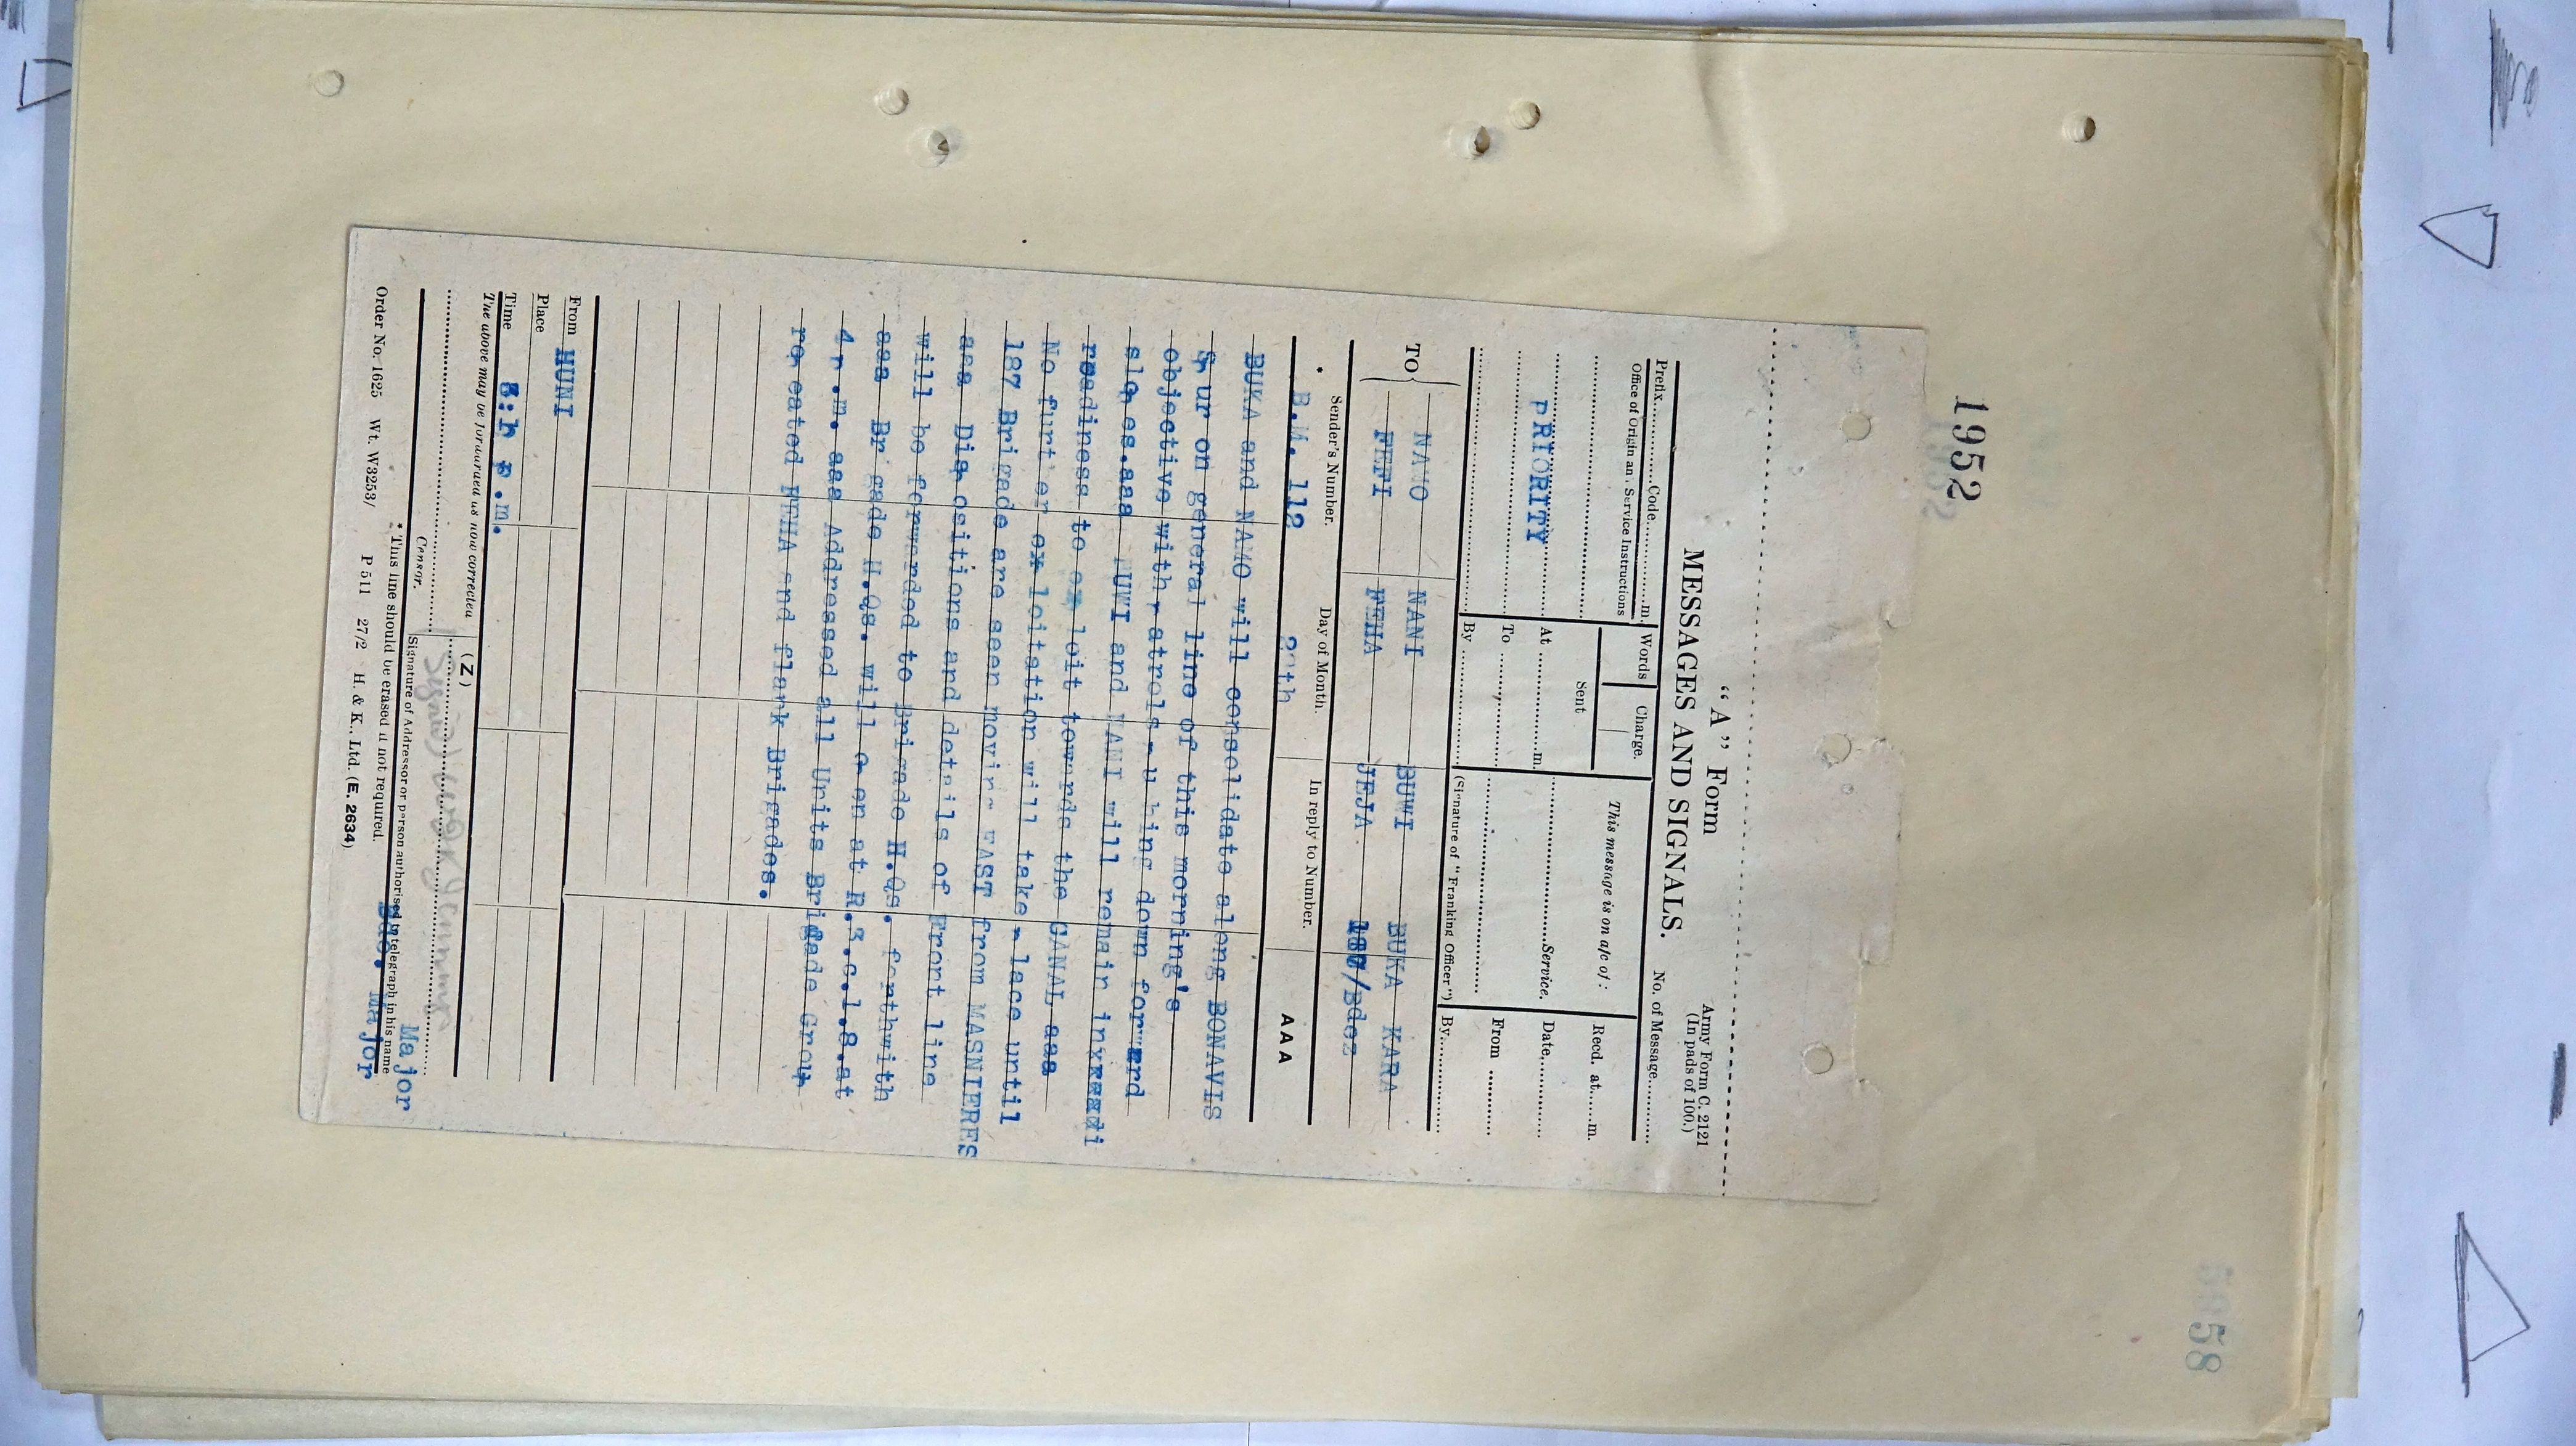 1952
"A" Form
Army Form C. 2121
(In pads of 100.)
MESSAGES AND SIGNALS.
No. of Message
Prefix Code m. Words Charge.
Office of Origin and Service Instructions
This message is on a/c of :
Recd. at m.
PRIORITY
Sent
At m.
To
By
Service.
Date
From
(Signature of "Franking Officer")
By
TO NAMO NANI BUWI BUKA KARA
FEFI FEHA JEJA /Bdes
* Sender's Number. Day of Month. In reply to Number.
B.M. 112 th AAA
BUKA and NAMO will consolidate along BONAVIS
S ur on general line of this morning's
objective with atrols u hing down forward
slo es.aaa BUWI and NANI will remain in
readiness to ex loit towards the CANAL aaa
No further ex loitation will take lace until
187 Brigade are seen moving EAST from MASNIERES
aaa Dispositions and details of Front line
will be forwarded to Brigade H.Qs. forthwith
aaa Brigade H.Qs. will o en at R.3.c.1.8.at
4 .m. aaa Addressed all Units Brigade Group
re eated FEHA and flank Brigades.
From HUNI
Place
Time p.m.
The above may be forwarded as now corrected (Z)
(Signed)
Major
Censor. Signature of Addressor or person authorised to telegraph in his name
* This line should be erased if not required.
Bde. Major
Order No. 1625 Wt. W3253/ P 511 27/2 H. & K., Ltd. (E. 2634)
5058